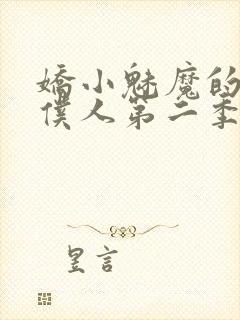 嬌小魅魔的
僕人第二季
昱言